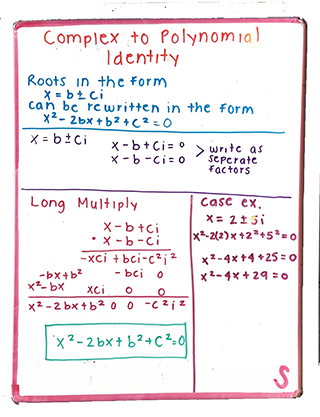 Complex to Polynomial
Identity
Roots in the form
x = b ± ci
can be rewritten in the form
x² - 2bx + b² + c² = 0
x = b ± ci
x - b + ci = 0
x - b - ci = 0
> write as
seperate
factors
Long Multiply
x - b + ci
• x - b - ci
-xci + bci - c²i²
-bx + b² - bci 0
x² - bx xci 0 0
x² - 2bx + b² 0 0 - c²i²
x² - 2bx + b² + c² = 0
case ex.
x = 2 ± 5i
x² - 2(2)x + 2² + 5² = 0
x² - 4x + 4 + 25 = 0
x² - 4x + 29 = 0
S